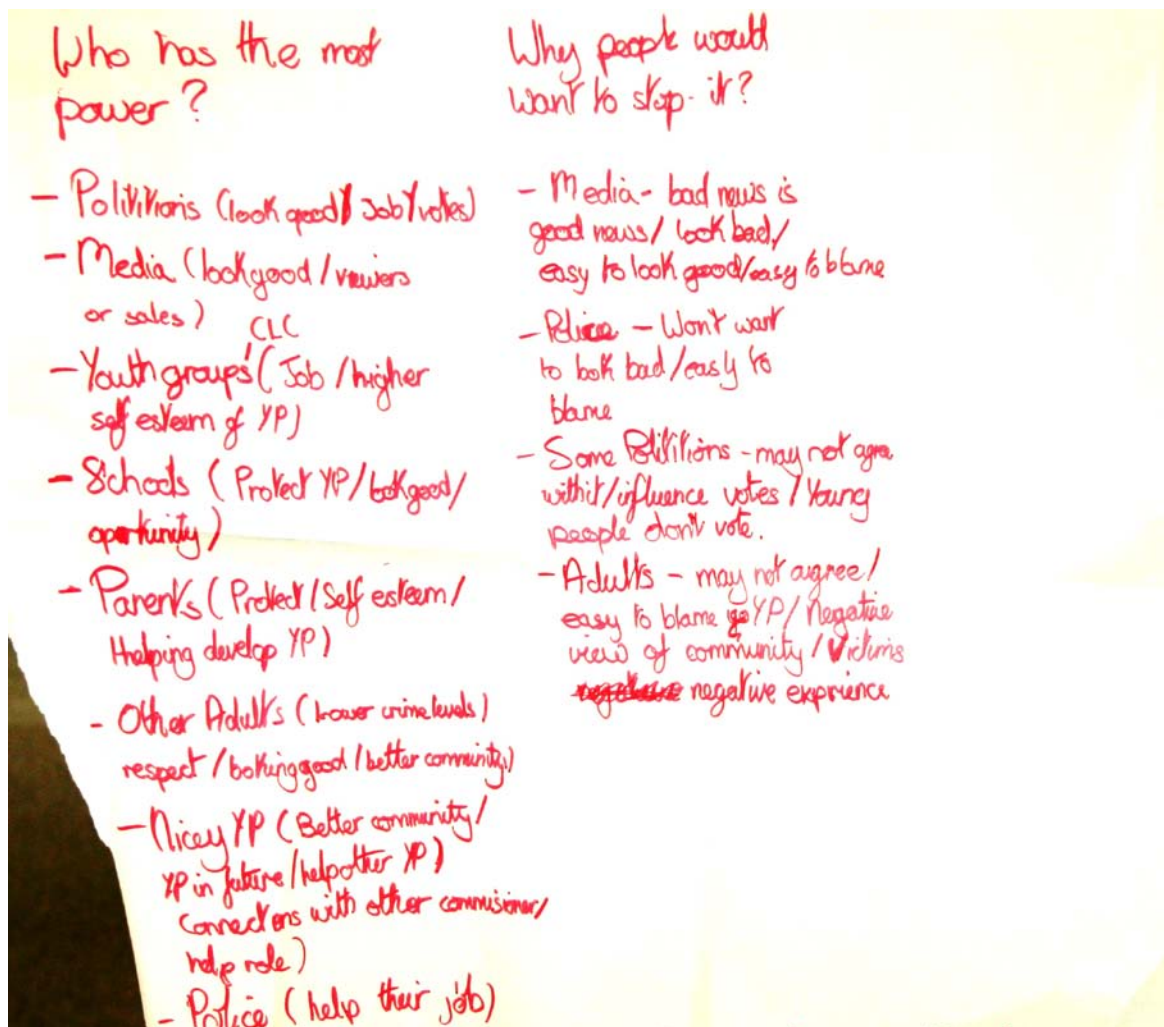 Who has the most
power?
- Polititions (look good / Job / votes)
- Media (look good / viewers
or sales)
CLC
- Youth groups (Job / higher
self esteem of YP)
- Schools (Protect YP / look good /
oportunity)
- Parents (Protect / Self esteem /
Helping develop YP)
- Other Adults (lower crime levels)
respect / looking good / better community)
- Nicey YP (Better community /
YP in future / help other YP)
Connections with other commisioner /
help role)
- Police (help their job)
Why people would
want to stop it?
- Media - bad news is
good news / look bad /
easy to look good / easy to blame
- Police - Won't want
to look bad / easy to
blame
- Some Polititions - may not agree
with it / influence votes / Young
people don't vote.
- Adults - may not agree /
easy to blame YP / Negative
view of community / Victims
negative exprience